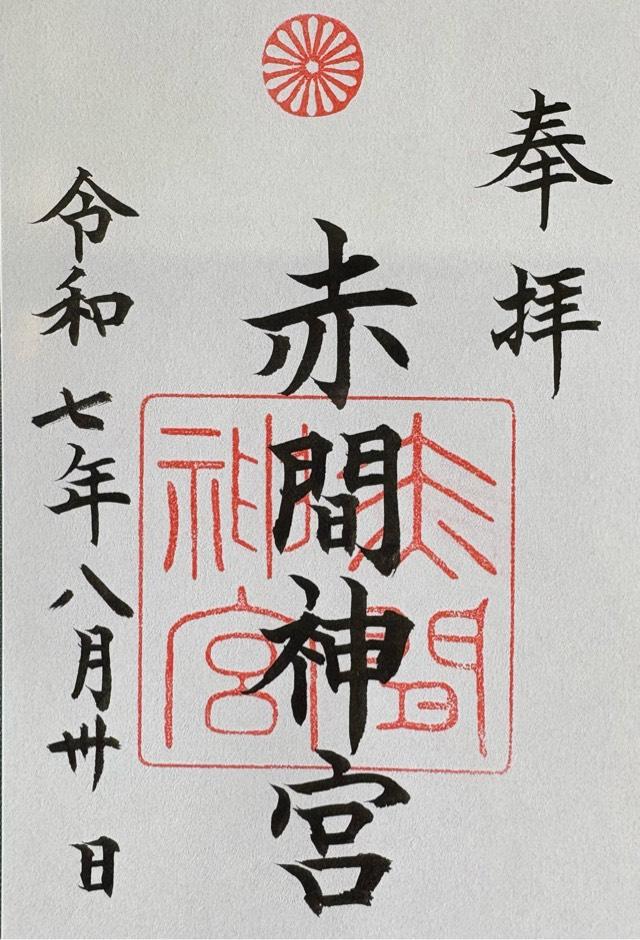 奉拝
赤間神宮
赤間神宮
令和七年八月卅日